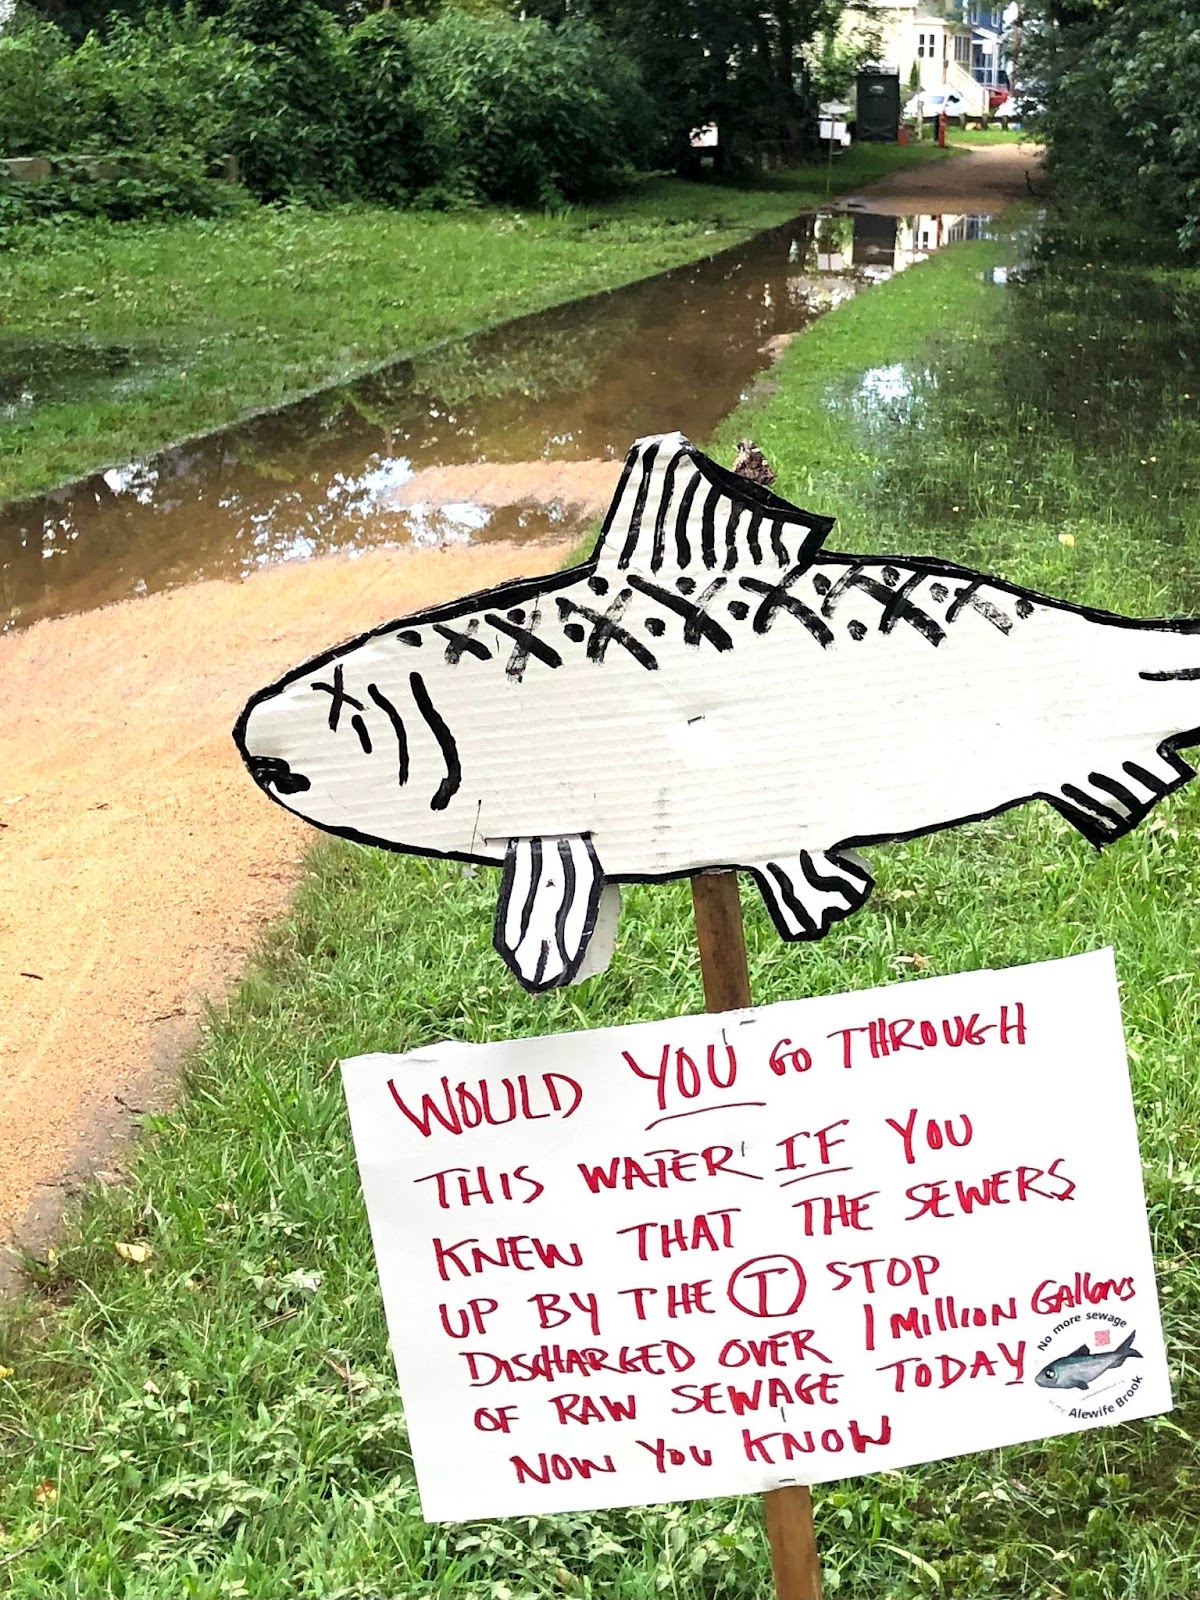 WOULD YOU GO THROUGH
THIS WATER IF YOU
KNEW THAT THE SEWERS
UP BY THE T STOP
DISCHARGED OVER 1 MILLION GALLONS
OF RAW SEWAGE TODAY
NOW YOU KNOW
No more sewage
Alewife Brook